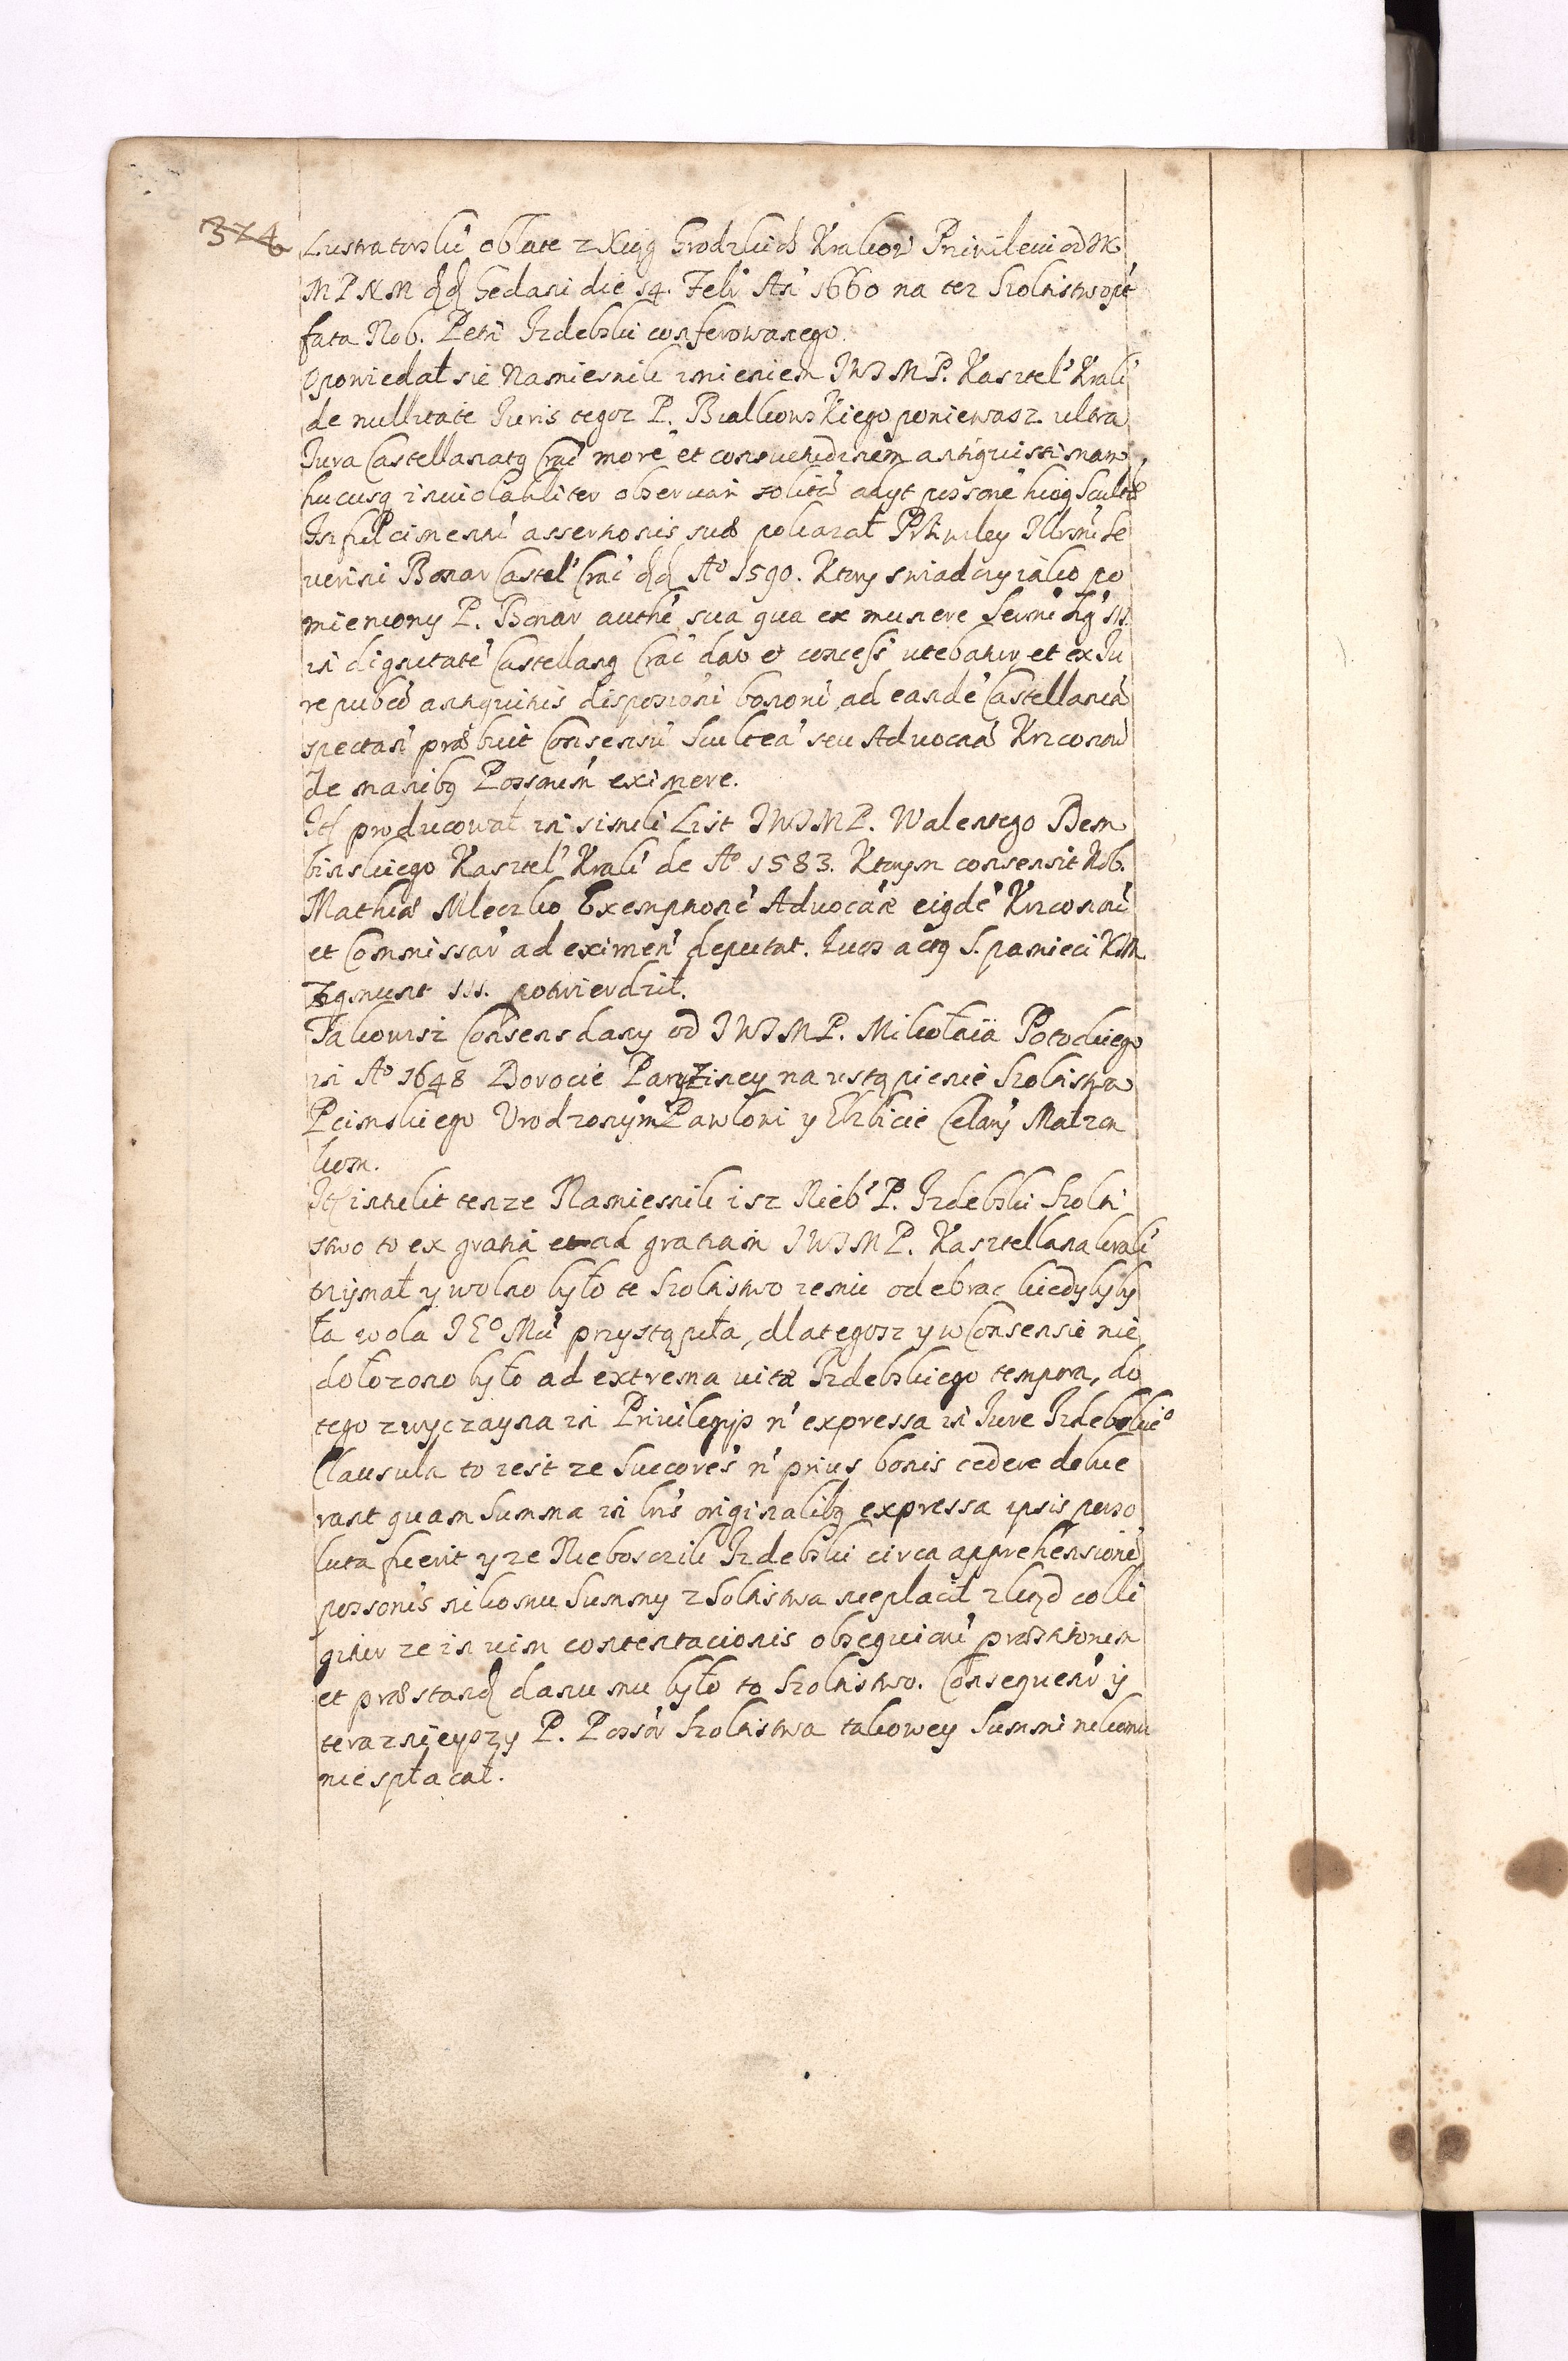 374
Lustratorski oblate z Xiąg Grodzkich Krakow Przivileiu od JK
M P N M dd Gedani die 14. Feb. An 1660 na tez Szoltistwo pt
fata Nob. Petri Izdebski conferowanego.
Opowiedał sie Namiesnik imieniem JWJMP. Kasztel Krak
de nullitate Iuris tegoz P. Bialkowskiego poniewasz ultra
Jura Castellanatq Crac more et consvetudinem antiquissimam
hucusq inviolabiliter observari solita adyt possone huiq Scult
In fulcimenti assertionis suæ pokazał Przywiley Illrmi Se
verini Bonar Castel Crac dd Aº 1590. Ktory swiadczy iako po
mieniony P. Bonar authe sua qua ex munere Sermi Sig III.
in dignitate Castellanq Crac dato et concessi utebatur et ex Iu
re pubco antiquitus disposioni bonori ad eande Castellania
spectan præbuit Consensu Sculteti seu Advocatia Krzconow
de manibq Possorum eximere.
It producował in simili List JWJMP. Walentego Dem
binskiego Kasztel Krak de Aº 1583. Ktorym consensit Nob.
Mathiæ Mleczko Exemptione Advocatiæ eiqde Krzconow
et Commissar ad eximen deputat. Quos actq S. pamieci KJM
Zigmunt III. potwierdził.
Takowisz Consens dany od JWJMP. Mikołaia Potockiego
in Aº 1648 Dorocie Paryżiney na ustąpienie Szoltistwa
Pcimskiego Urodzonym Pawłowi y Elzbiecie Celary Małzon
kom.
It intulit tenze Namiesnik isz Nieb P. Izdebski Szolti
stwo to ex gratia et ad gratiam JWJMP. Kasztellana krak
trzymał y wolno było te Szoltistwo zemu odebrac kiedyby by
ła wola JEº Mci przystąpiła, dlategosz y w Consensie nie
dołozono było ad extrema vitæ Izdebskiego tempora, do
tego zwyczayna in Privilegijs n expressa in Iure Izdebskieº
Clausula to iest ze Succores n prius bonis cedere debue
rant quam Summa in lris originalibq expressa ipsis perso
luta fuerit y ze Nieboszczik Izdebski circa apprehensione
possonis nikomu Summy z Soltistwa nieplacił zkąd colli
gitur ze in vim contentacionis obsequiori præstitorum
et præstand dane mu było to Szoltistwo. Consequent y
teraznieyszy P. Possor Szoltistwa takowey Summi nikomu
nie spłacał.